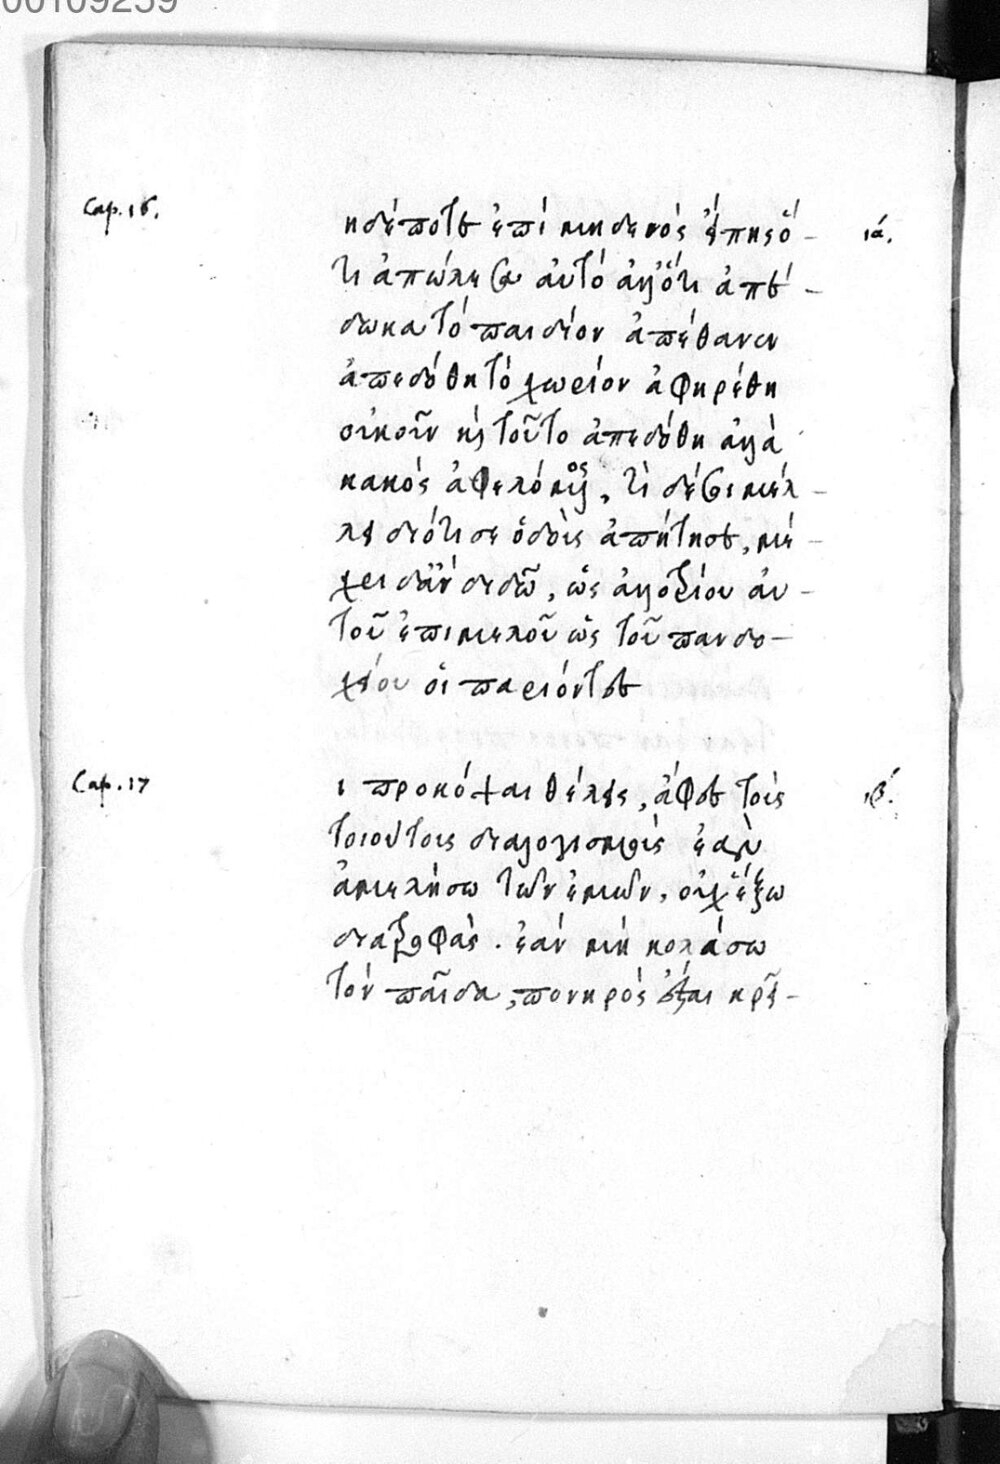 00109259
Cap. 16.
ηδέποτε ἐπὶ μηδενὸς εἴπῃς ὅ- ιά.
τι ἀπώλεσα αὐτό ἀλλ' ὅτι ἀπέ-
δωκα τὸ παιδίον ἀπέθανεν
ἀπεδόθη τὸ χωρίον ἀφηρέθη
οὐκοῦν καὶ τοῦτο ἀπεδόθη ἀλλὰ
κακὸς ὁ ἀφελόμενος, τί δέ σοι μέλ-
λει διότι σε ὁ δοὺς ἀπῄτησε, μέ-
χρι δ' ἂν διδῷ, ὡς ἀλλοτρίου αὐ-
τοῦ ἐπιμελοῦ ὡς τοῦ πανδο-
χείου οἱ παριόντες
Cap. 17
ι προκόψαι θέλεις, ἄφες τοὺς ιβ.
τοιούτους διαλογισμοὺς ἐὰν
ἀμελήσω τῶν ἐμῶν, οὐχ ἕξω
διατροφάς. ἐὰν μὴ κολάσω
τὸν παῖδα, πονηρὸς ἔσται κρεῖ-